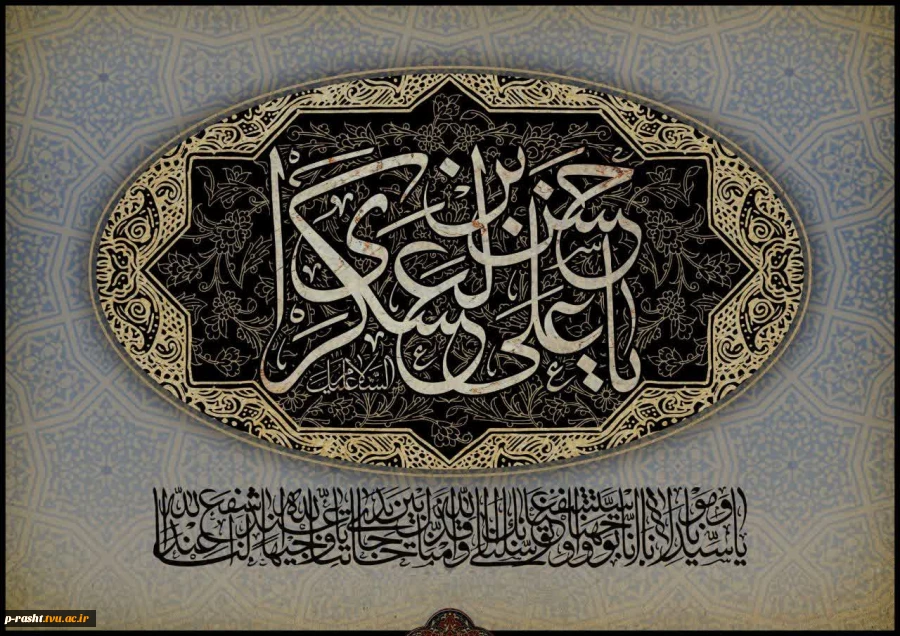 یا حسن بن علی العسکری
السلام علیک
یا سیدنا و مولانا انا توجهنا و استشفعنا و توسلنا بک الی الله و قدمناک بین یدی حاجاتنا یا وجیها عند الله اشفع لنا عند الله
p-rasht.tvu.ac.ir